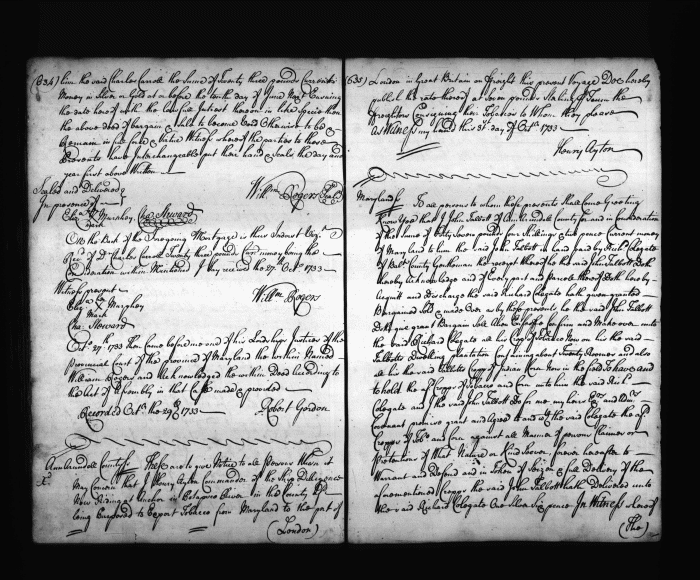 (634) him the said Charles Carroll the Sume of Twenty three pounds Current
Money in Silver or Gold at or before the tenth day of June Next Ensuing
the date hereof with the Lawfull Interest thereon in like Specie then
the above deed of bargain & Sale to become Void Otherwise to be &
Remain in full force & Virtue Witness whereof the parties to these
presents have Interchangeably put their hands & Seals the day and
year first above Written
Sealed and Delivered
In presence of
Willm Rogers (Seal)
Eliza X Marshey, Cha. Steward
Mark
On the Back of the foregoing Mortgage is thus Indorst
Recd of Dr Charles Carroll Twenty three pounds Curr. money being the
Consideration within Mentioned I say received the 27th Octr 1733
Witness present
Eliza X Marshey
Mark
Cha. Steward
Willm Rogers
Octr 27th 1733 Then Came before me one of his Lordships Justices of the
Provincial Court of the province of Maryland the within Named
William Rogers and Acknowledged the within Deed According to
the Act of Assembly in that Case made & provided
Recorded Octr the 29th 1733
Robert Gordon
Ann Arundell County ss. These are to give Notice to all persons Whom it
May Concern that I Henry Ayton Commander of the Ship Diligence
Now Riding at Anchor in Patapsco River in this County &
being Purposed to Export Tobacco from Maryland to the port of
(London)
(635) London in Great Britain on freight this present Voyage Doe hereby
publish the rate thereof at Seven pounds Sterling Tunn the
freighters Consigning their Tobaccos to Whom they please
As Witness my hand this 31 day of Octr 1733
Henry Ayton
Maryland ss. To all persons to whom these presents Shall Come Greeting
Know Yee that I John Talbott of Ann Arundell County for and in Consideration
of the Sume of Fifty Seven pounds four Shillings & Six pence Current money
of Maryland to him the said John Talbott in hand paid by Richd Colegate
of Balt. County Gentleman the receipt whereof he the said John Talbott Doth
hereby Acknowledge and of Every part and parcele thereof doth hereby
Acquitt and Discharge the said Richard Colegate hath given granted
Bargained Sold made Over & by these presents he the said John Talbott
Doth give grant Bargain Sell Alien Enfeoffe Confirm and Make over unto
the said Richard Colegate all his Crop of Tobacco Now on his the said
Talbotts Dwelling plantation Containing about Twenty and also
all his the said Talbotts Crop of Indian Corn Now in the field To have and
to hold the sd Crop of Tobacco and Corn unto him the said Richd
Colegate and I the said John Talbott Do for me my heirs Exrs and Admrs
Covenant promise grant and Agree to and with the said Colegate the sd
Cropps of Tobo and Corn against all Manner of persons Claimers or
Pretentions of that Nature or Kind Soever forever hereafter to
Warrant and Defend and in Token of Seizen & full Delivery of the
aforementioned Cropps the said John Talbott hath Delivered unto
the said Richard Colegate One Silver Six pence In Witness whereof
(The)